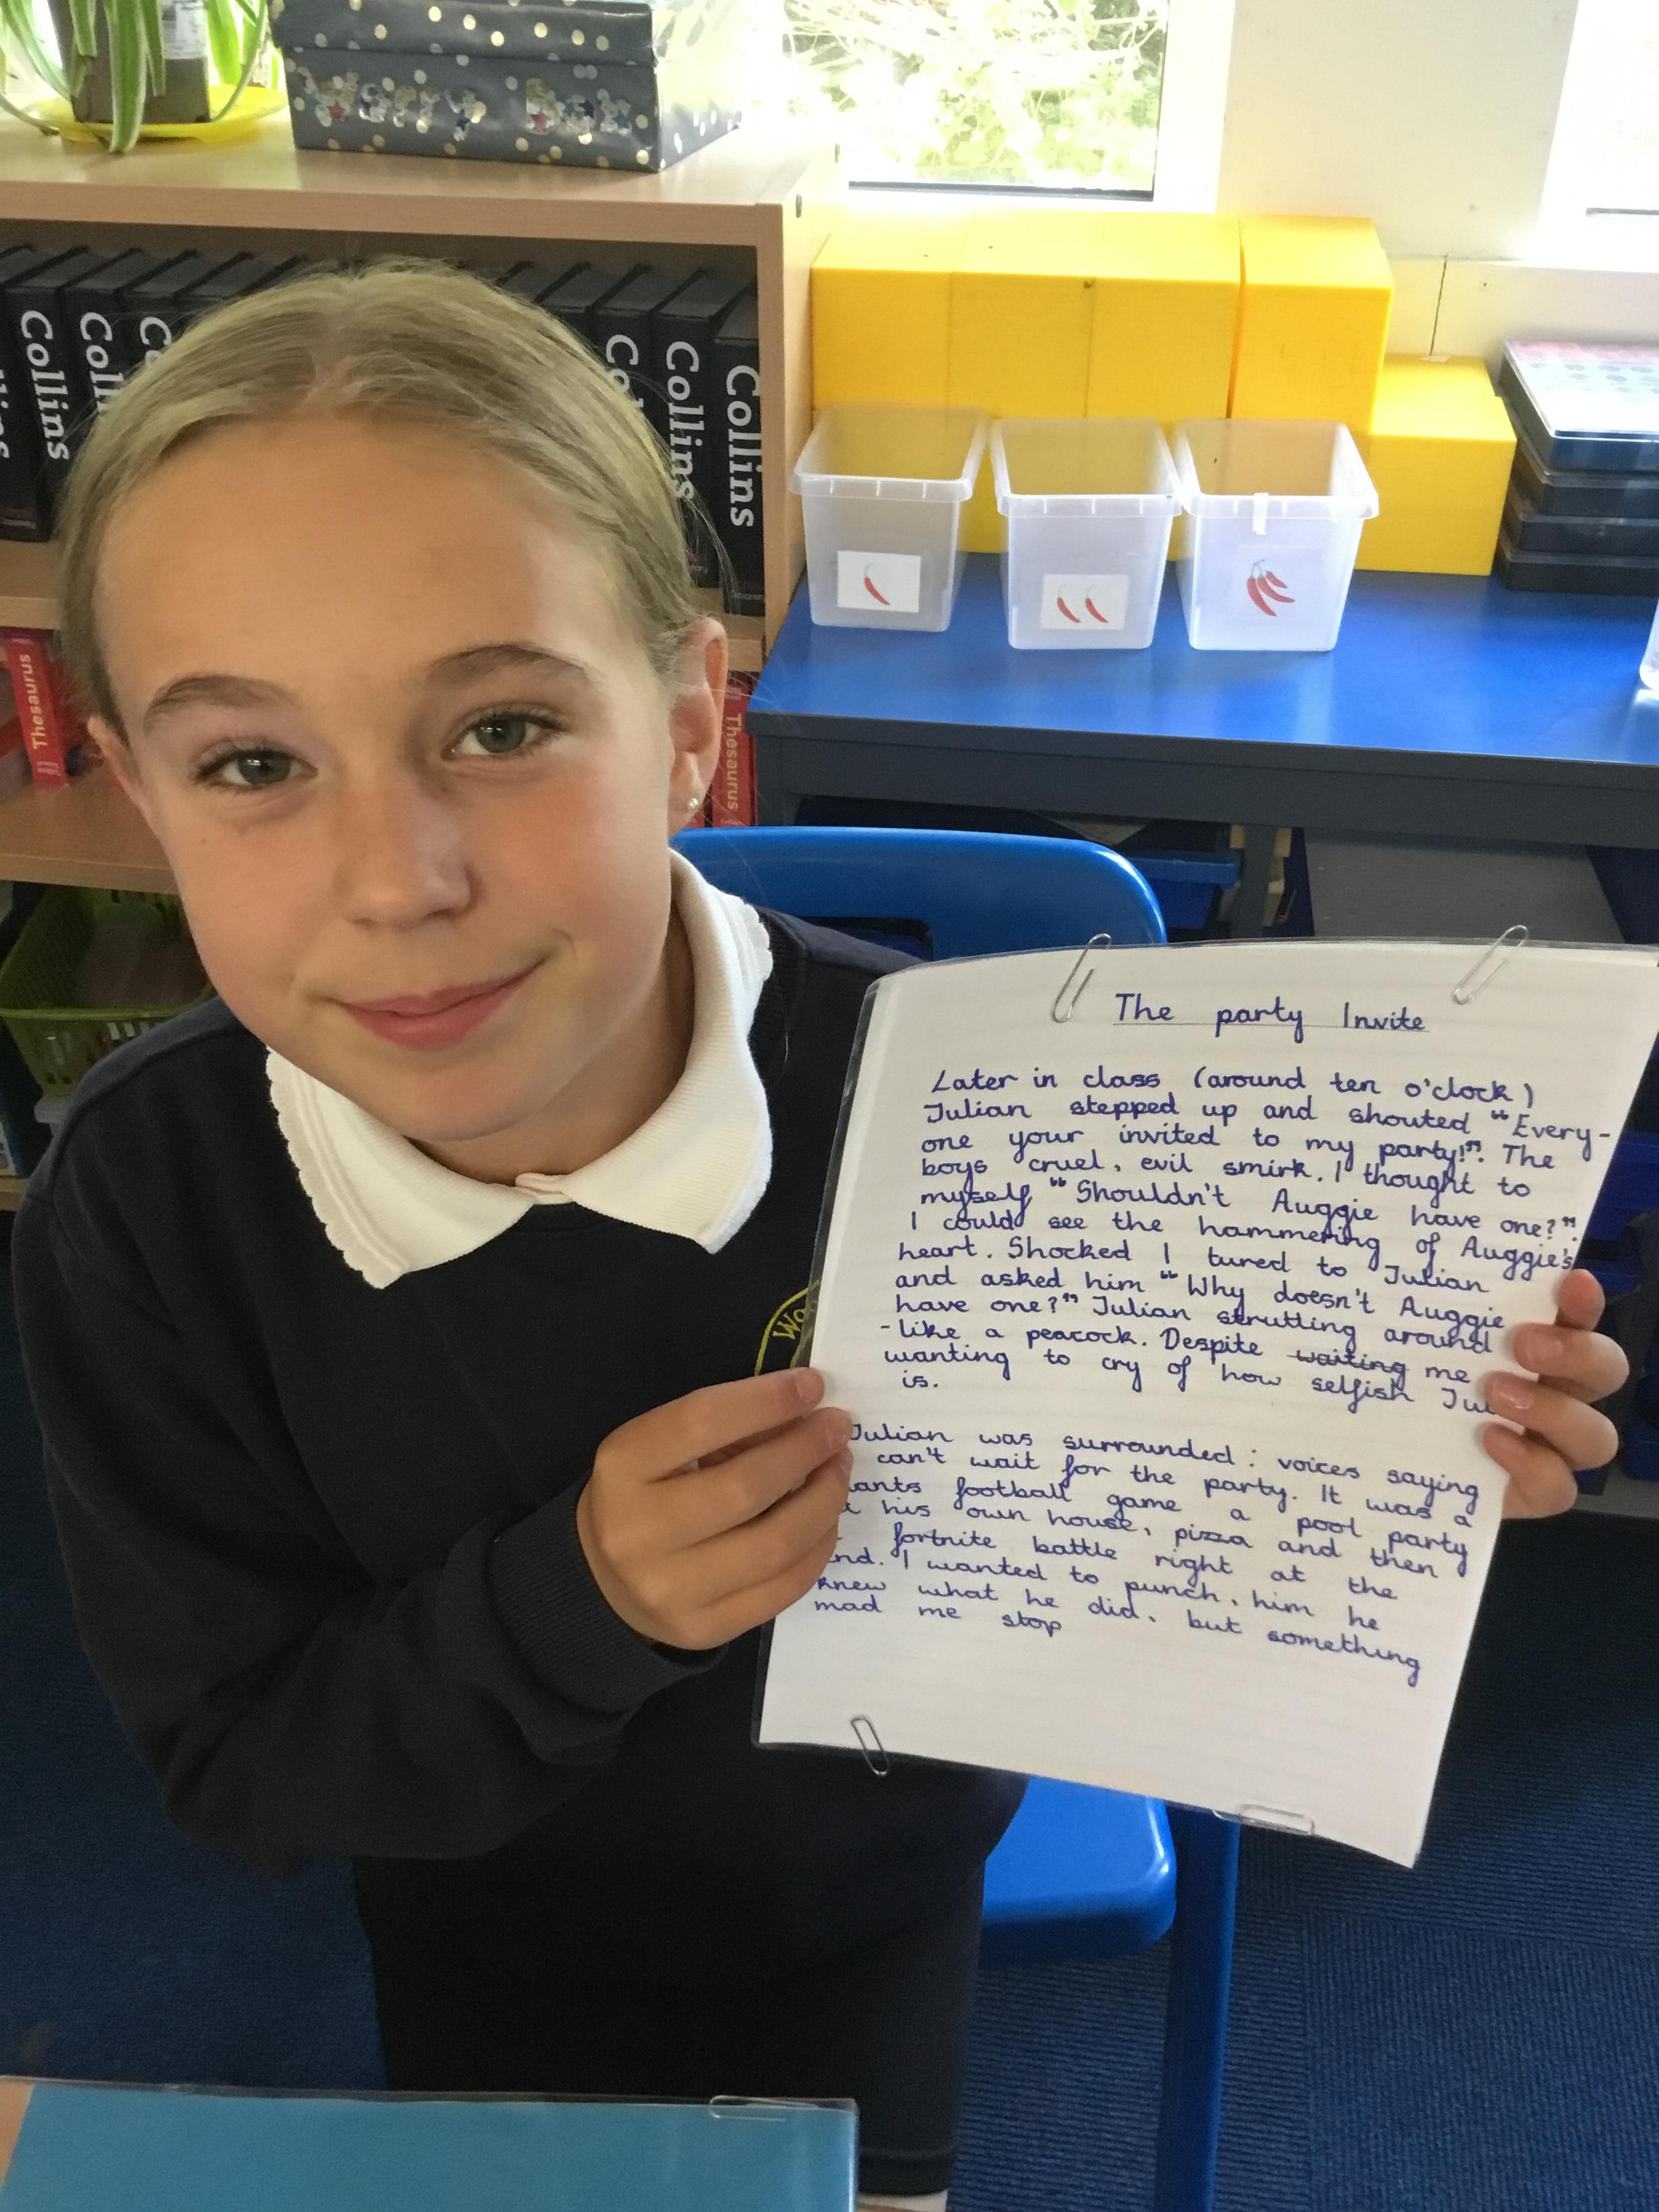 Collins
Collins
Collins
Collins
Thesaurus
Thesaurus
The party Invite
Later in class (around ten o'clock)
Julian stepped up and shouted "Every-
one your invited to my party!". The
boys cruel, evil smirk. I thought to
myself "Shouldn't Auggie have one?".
I could see the hammering of Auggie's
heart. Shocked I tured to Julian
and asked him "Why doesn't Auggie
have one?" Julian strutting around
-like a peacock. Despite waiting me
wanting to cry of how selfish
is.
Julian was surrounded: voices saying
can't wait for the party. It was a
football game a pool party
his own house, pizza and then
fortnite battle right at the
end. I wanted to punch, him he
knew what he did, but something
mad me stop